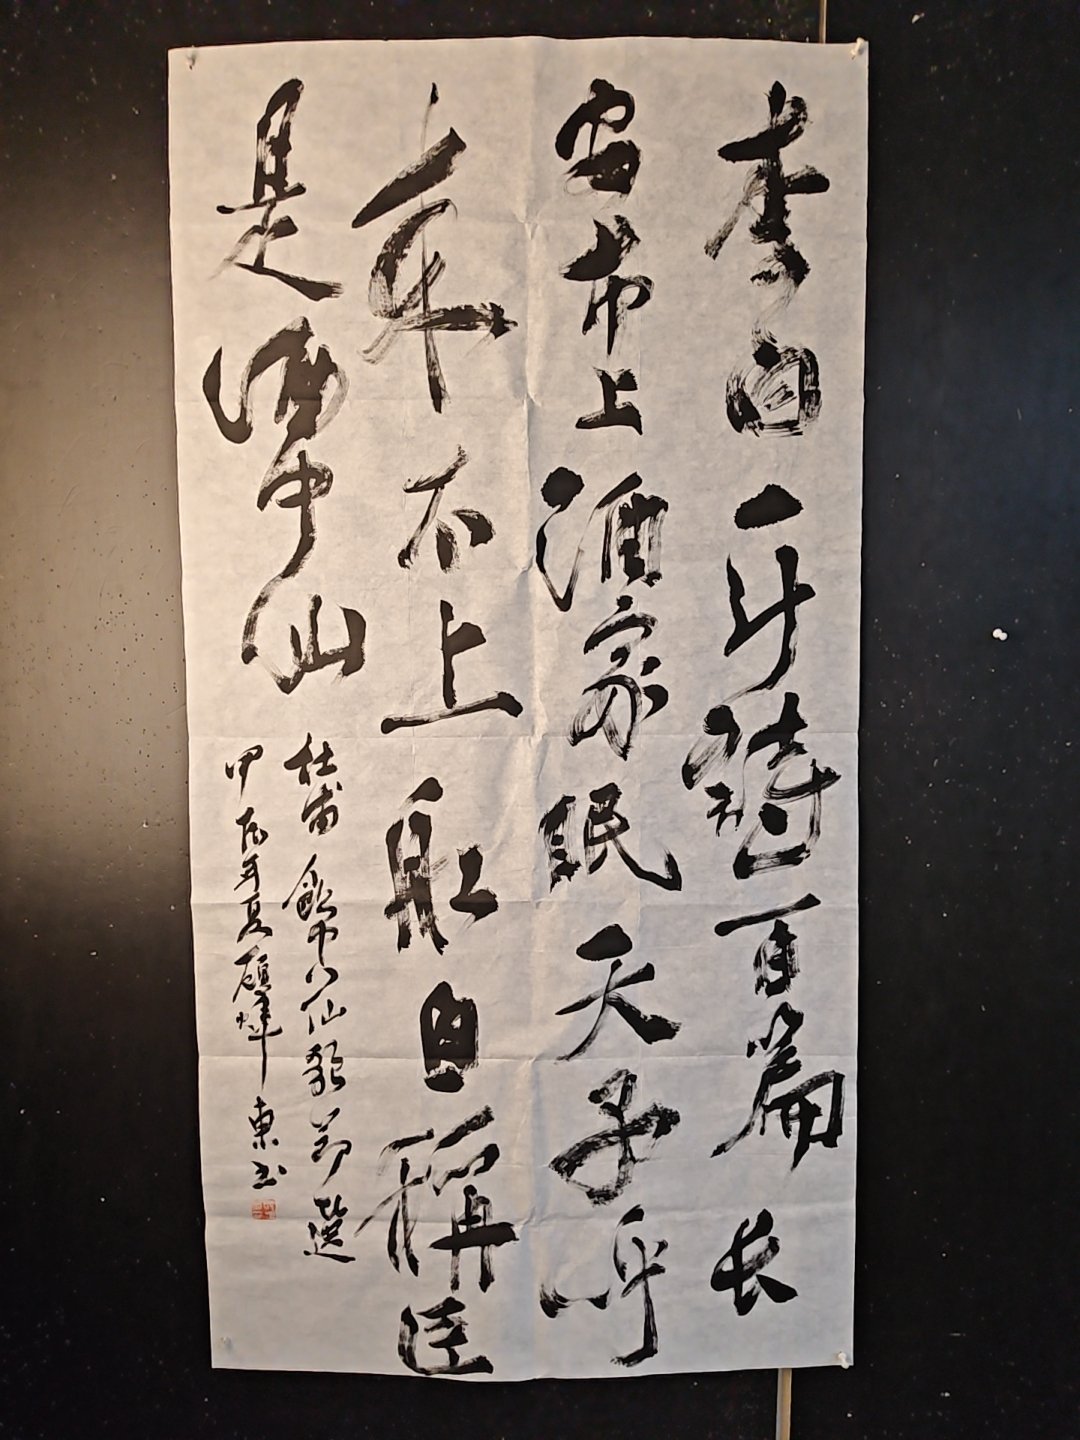 李白一斗詩百篇长
安市上酒家眠天子呼
来不上船自稱臣
是酒中仙
杜甫飲中八仙歌节選
甲辰年夏顾煇東书